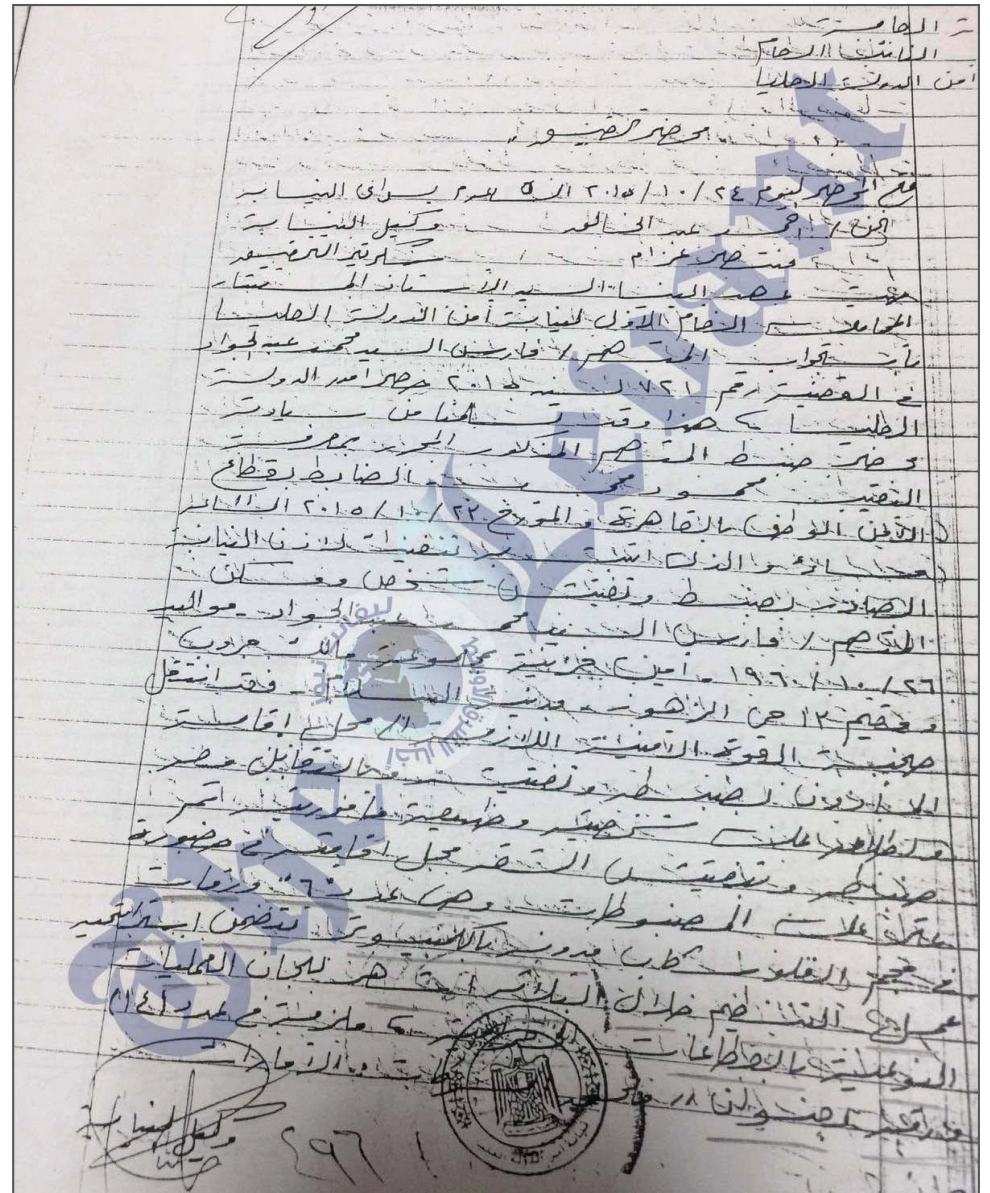 الخامسة
النائب العام
أمن الدولة العليا
محضر تحقيق
فتح المحضر اليوم ٢٤/١٠/٢٠١٥ الساعة بسراى النيابة
نحن / أحمد عبد الخالق وكيل النيابة
منتصر عزام سكرتير التحقيق
حيث عهد إلينا السيد الأستاذ المستشار
المحامى العام الأول لنيابة أمن الدولة العليا
باستجواب المتهم / فارس السيد محمد عبد الجواد
فى القضية رقم ٧٢١ لسنة ٢٠١٥ حصر أمن الدولة
العليا هذا وقد تسلمنا من سيادته
محضر ضبط المتهم المذكور المحرر بمعرفة
النقيب محمود محمد الضابط بقطاع
الأمن الوطنى بالقاهرة والمؤرخ ٢٢/١٠/٢٠١٥ الساعة
مساءً والذى أثبت به تنفيذاً لإذن النيابة
الصادر لضبط وتفتيش شخص ومسكن
المتهم / فارس السيد محمد عبد الجواد مواليد
٢٦/١٠/١٩٦٠ أمين خزينة بمجموعة مالك جروب
ومقيم ١٢ حى الزهور مدينة السلام فقد انتقل
صحبة القوة الأمنية اللازمة إلى محل إقامة
المأذون بضبطه وتفتيشه وبالتقابل معه
واطلاعه على شخصيته وطبيعة مأموريته تم
ضبطه وتفتيش الشقة محل إقامته فى حضوره
عثر على المضبوطات وهى عدد "٦" ورقات
فى حجم الفلوسكاب مدونة بالكمبيوتر تتضمن استراتيجية
عمل التنظيم خلال الثلاثة أشهر للجان العمليات
النوعية بالقطاعات ملزمة فى عدد (١٤)
ورقة بعنوان
وكيل النيابة
٤٩٦
eyelevant
ليفانت نيوز
أخبار الشرق الأوسط
نيابة أمن الدولة العليا